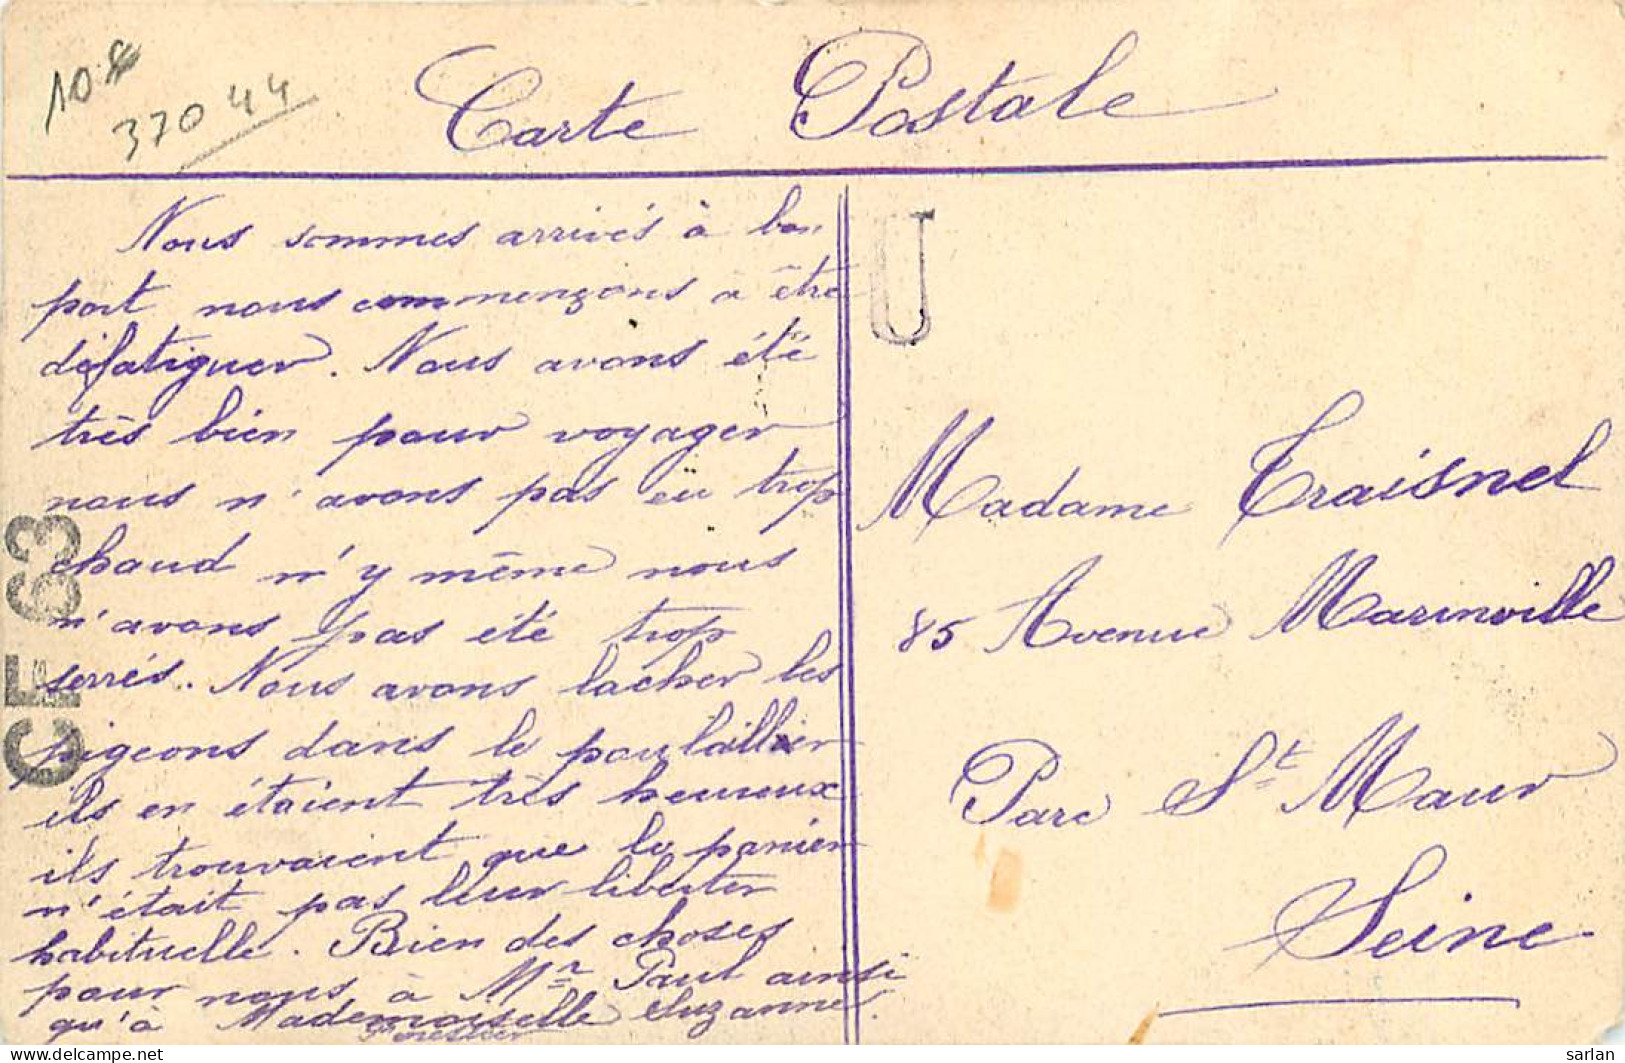 108
37044
Carte Postale
Nous sommes arrivés à bon
port nous commençons à être
défatiguer. Nous avons été
très bien pour voyager
nous n'avons pas eü trop
chaud n'y même nous
n'avons pas été trop
serrés. Nous avons lacher les
pigeons dans le poulaillier
ils en étaient très heureux
ils trouvaient que le panier
n'était pas leur liberter
habituelle. Bien des choses
pour nous à Mr Paul ainsi
qu'à Mademoiselle Suzanne.
U
Madame Traisnel
85 Avenue Marinville
Parc St Maur
Seine
CF 63
delcampe.net
sarlan